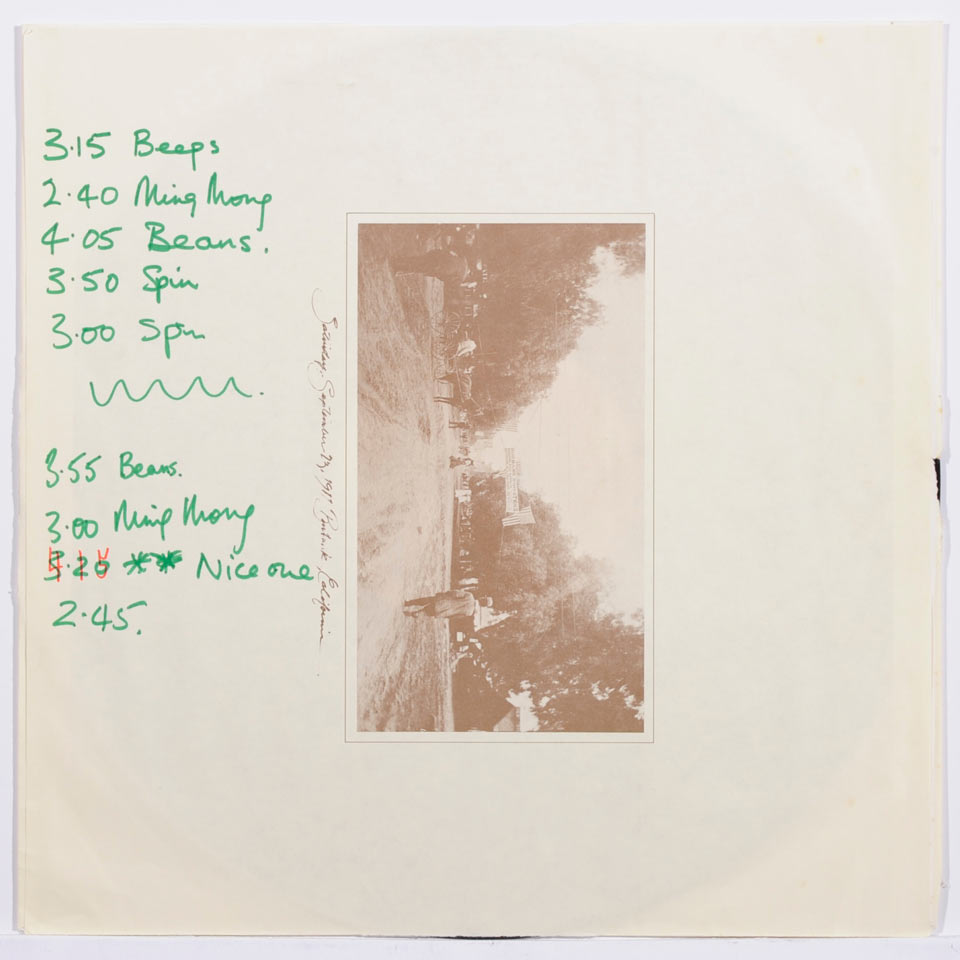 3.15 Beeps
2.40 Ming Mong
4.05 Beans.
3.50 Spin
3.00 Spin
3.55 Beans.
3.00 Ming Mong
3.20 ** Nice one
2.45.
Saturday, September 23, California